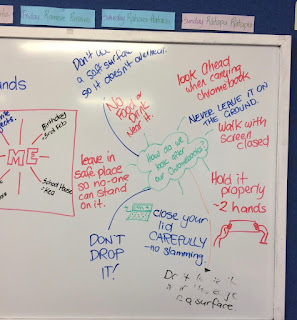 Friday Rāmere
Saturday Rāhoroi
Sunday Rātapu
Don't
a soft surface
so it doesn't overheat.
No Food or
DRINK
Near it.
look Ahead
when carrying
chromebook
NEVER LEAVE IT ON
THE GROUND.
Walk with
Screen
closed
ands
Birthday
ME
School House
leave in
safe place
so no-one
can stand
on it.
How do we
look after
our Chromebooks?
Hold it
properly
-2 hands
close your
lid
CAREFULLY
-no slamming
DON'T
DROP
IT!
surface